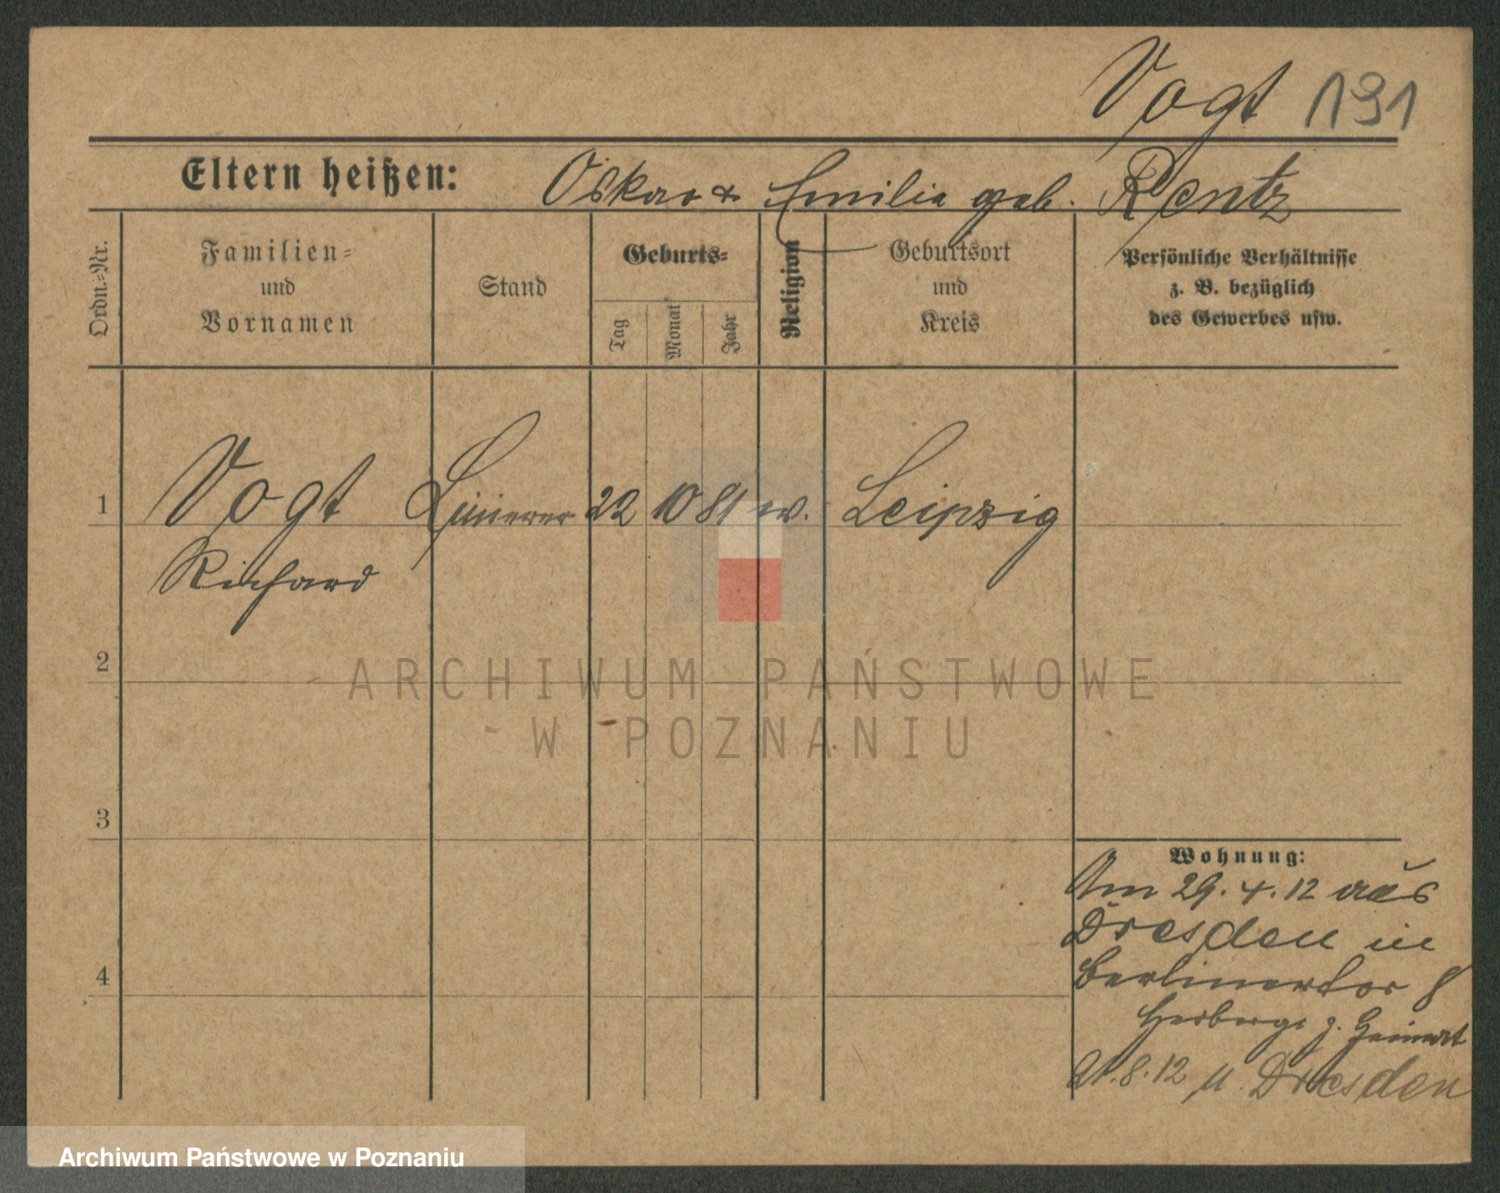 Vogt 191
Eltern heißen: Oskar & Emilie geb. Rentz
Ordn.=Nr.
Familien=
und
Vornamen
Stand
Geburts=
Tag
Monat
Jahr
Religion
Geburtsort
und
Kreis
Persönliche Verhältnisse
z. B. bezüglich
des Gewerbes usw.
1 Vogt 22 10 81 ev. Leipzig
Richard
2
3
4
Wohnung:
Am 29. 4. 12 aus
Dresden in
Berlinertor 8
Herberge z. Heimat
21. 8. 12 n. Dresden
ARCHIWUM PAŃSTWOWE
W POZNANIU
Archiwum Państwowe w Poznaniu